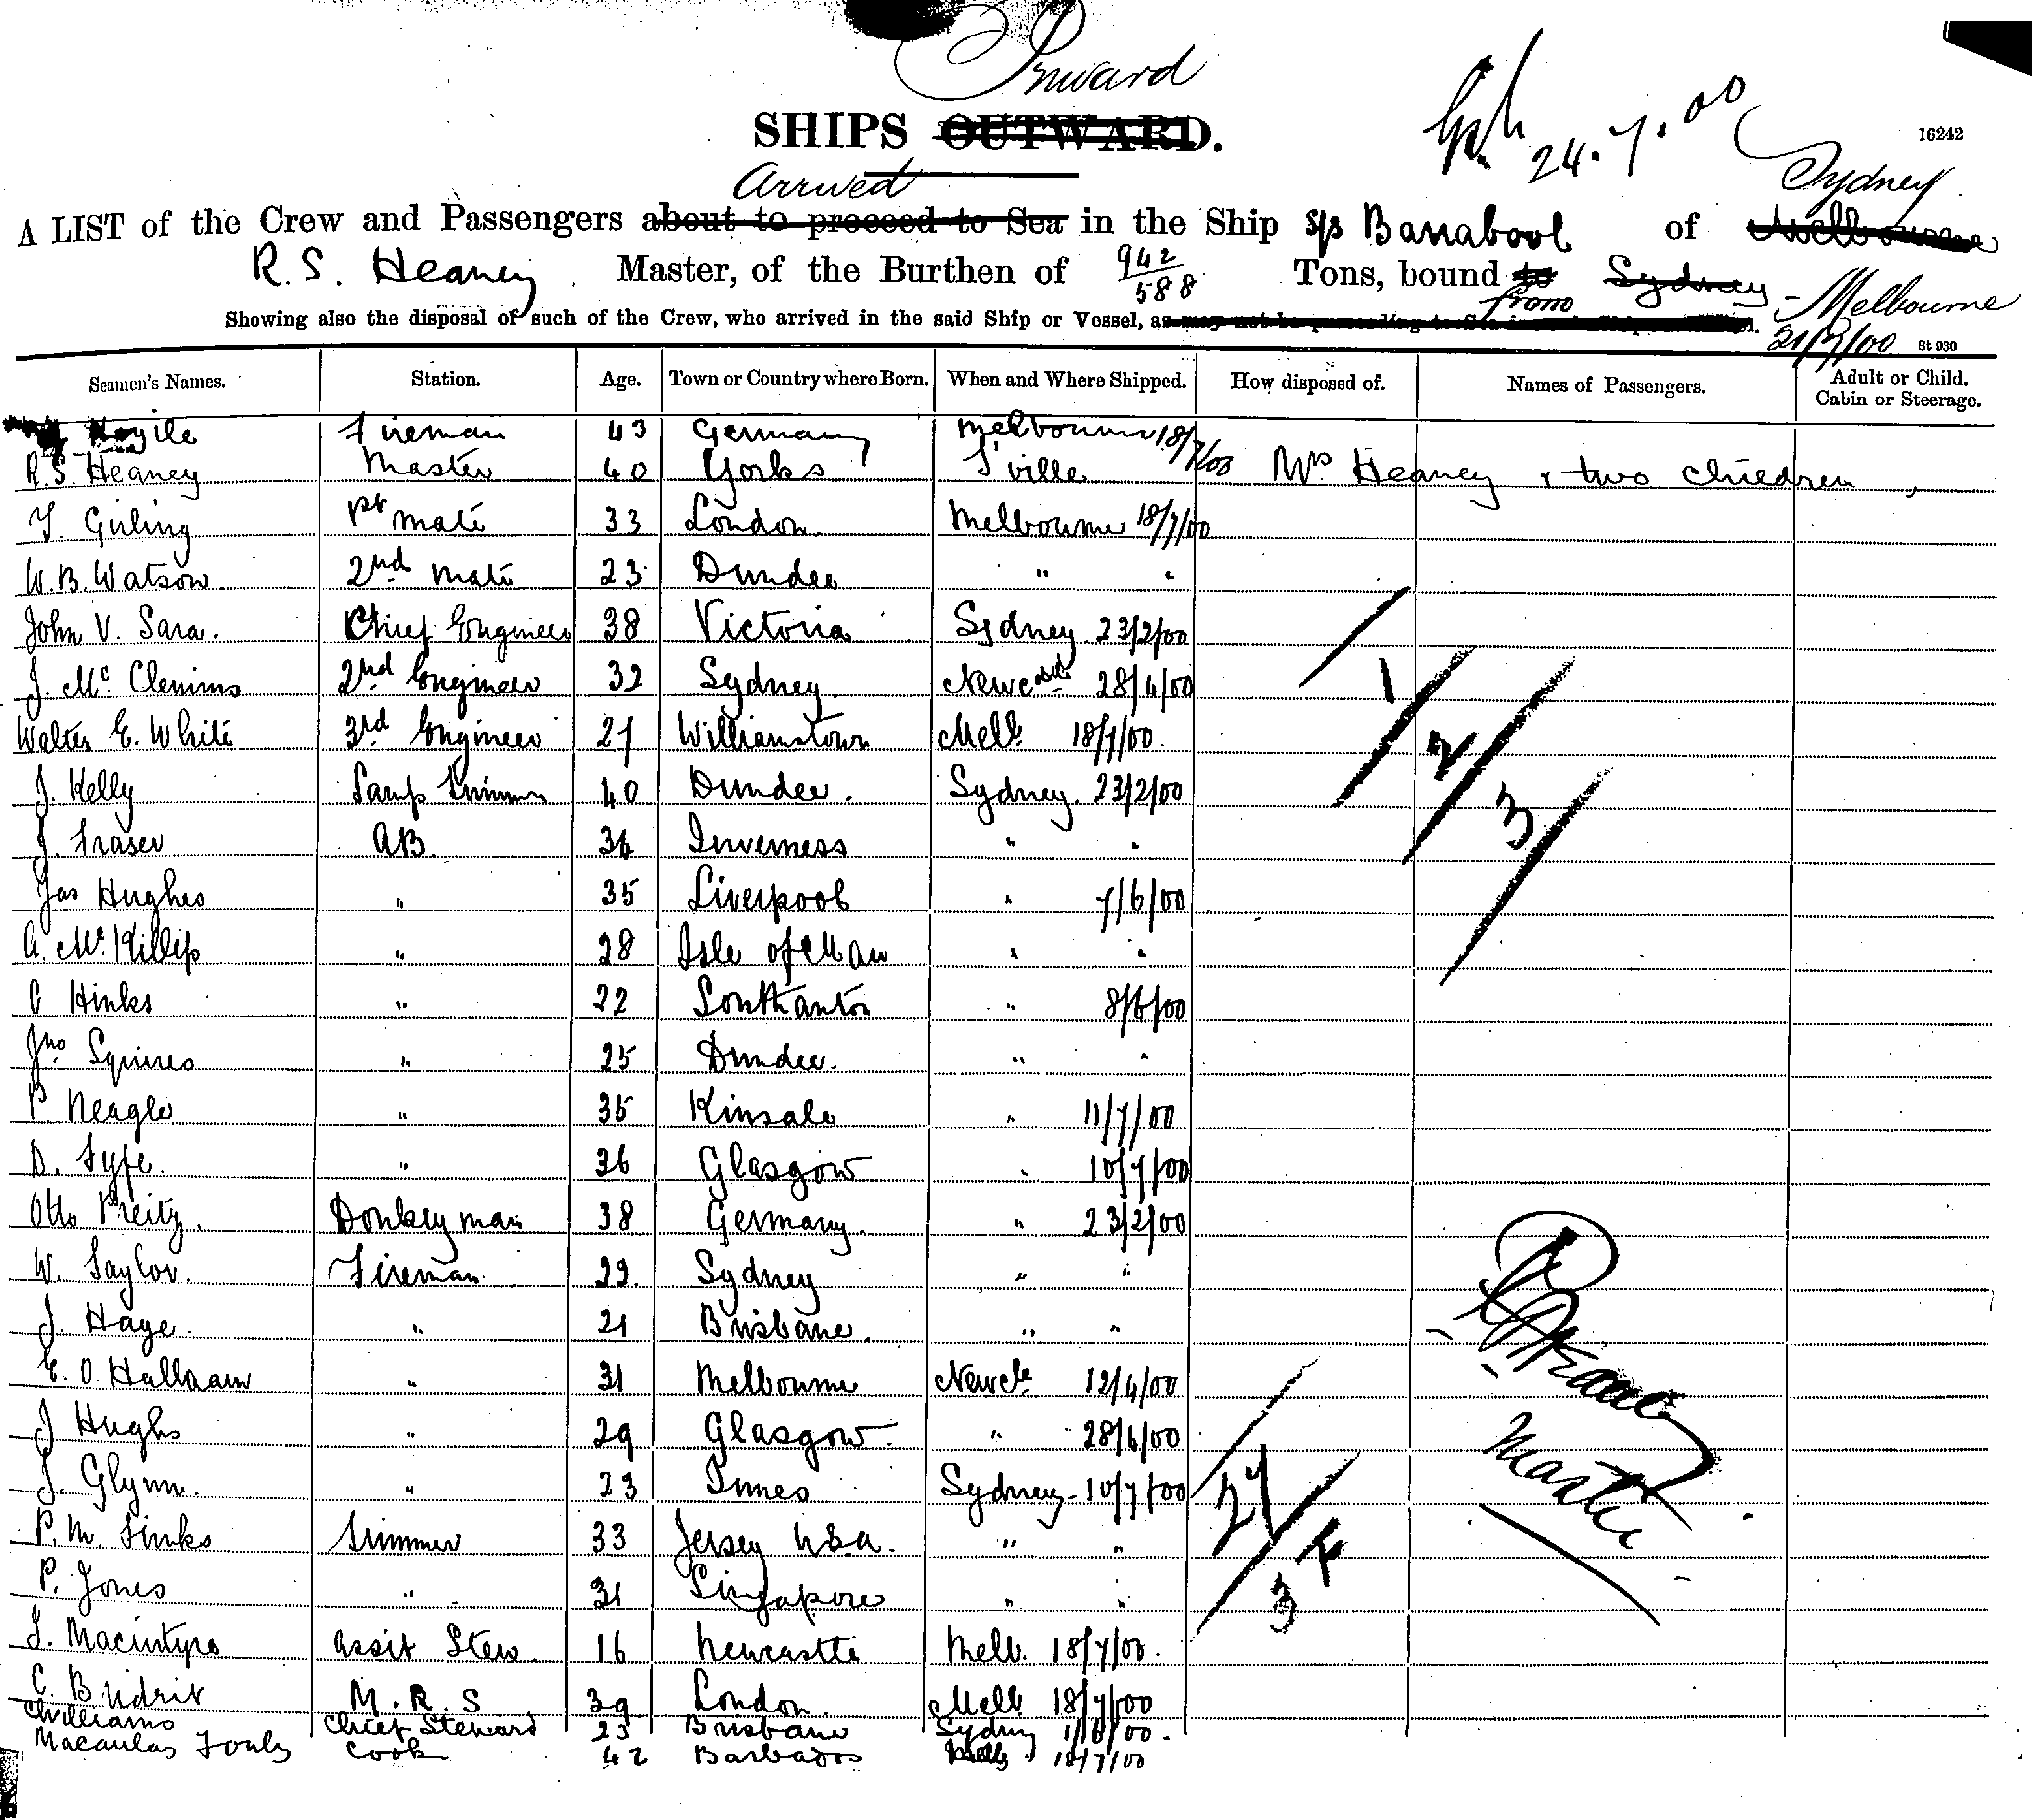 Inward
SHIPS OUTWARD.
24.7.00
16242
Arrived
Sydney
A LIST of the Crew and Passengers about to proceed to Sea in the Ship s/s Barrabool of Melbourne
R. S. Heaney Master, of the Burthen of 942/588 Tons, bound to Sydney
from Melbourne
Showing also the disposal of such of the Crew, who arrived in the said Ship or Vessel, as may not be proceeding to Sea
21/7/00 St 930
Seamen's Names. Station. Age. Town or Country where Born. When and Where Shipped. How disposed of. Names of Passengers. Adult or Child. Cabin or Steerage.
Fireman 43 Germany Melbourne 18/7/00
R. S. Heaney Master 40 Yorks T'ville Mrs Heaney & two children
T. Girling 1st Mate 33 London Melbourne 18/7/00
W. B. Watson 2nd Mate 23 Dundee " "
John V. Sara. Chief Engineer 38 Victoria Sydney 23/2/00
J. McClenims 2nd Engineer 32 Sydney Newcstle 28/6/00
Walter E. White 3rd Engineer 27 Williamstown Melb. 18/7/00
J. Kelly Lamp Trimmer 40 Dundee. Sydney 23/2/00
J. Fraser AB. 36 Inverness " "
Jas Hughes " 35 Liverpool " 7/6/00
A. McKillip " 28 Isle of Man " "
C Hinks " 22 Southanton " 8/6/00
Jno Squires " 25 Dundee. " "
P Neagle " 35 Kinsale " 11/7/00
D. Fyfe. " 36 Glasgow " 10/7/00
Otto Preitz. Donkeyman 38 Germany. " 23/2/00
W. Taylor. Fireman 29 Sydney " "
J. Haye. " 21 Brisbane. " "
E. O. Hallaam " 31 Melbourne Newcle 12/4/00
J Hughs " 29 Glasgow. " 28/6/00
J. Glynn. " 23 Sydney 10/7/00
P. M. Finks Trimmer 33 Jersey USA. " "
P. Jones " 31 Singapore " "
J. Macintyre Assit Stew 16 Newcastle Melb. 18/7/00.
C. Bridrit M.R.S 39 London Melb 18/7/00
C Williams Chief Steward 23 Brisbane Sydney 1/6/00.
Macaulay Cook 42 Barbados Melb 18/7/00
1
2
3
27
3
4
R S Heaney
Master